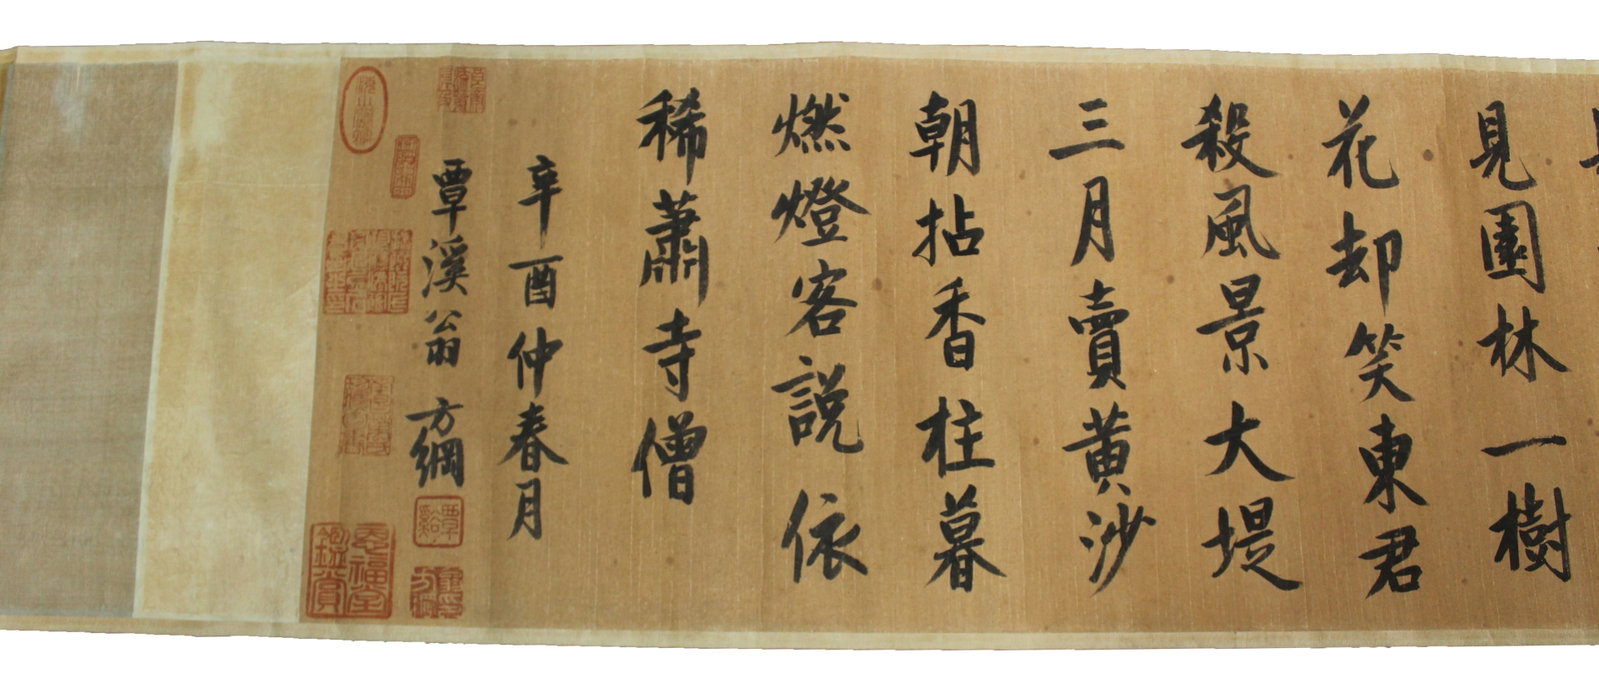 見園林一樹
花却笑東君
殺風景大堤
三月賣黄沙
朝拈香柱暮
燃燈客説依
稀蕭寺僧
辛酉仲春月
覃溪翁方綱
覃谿